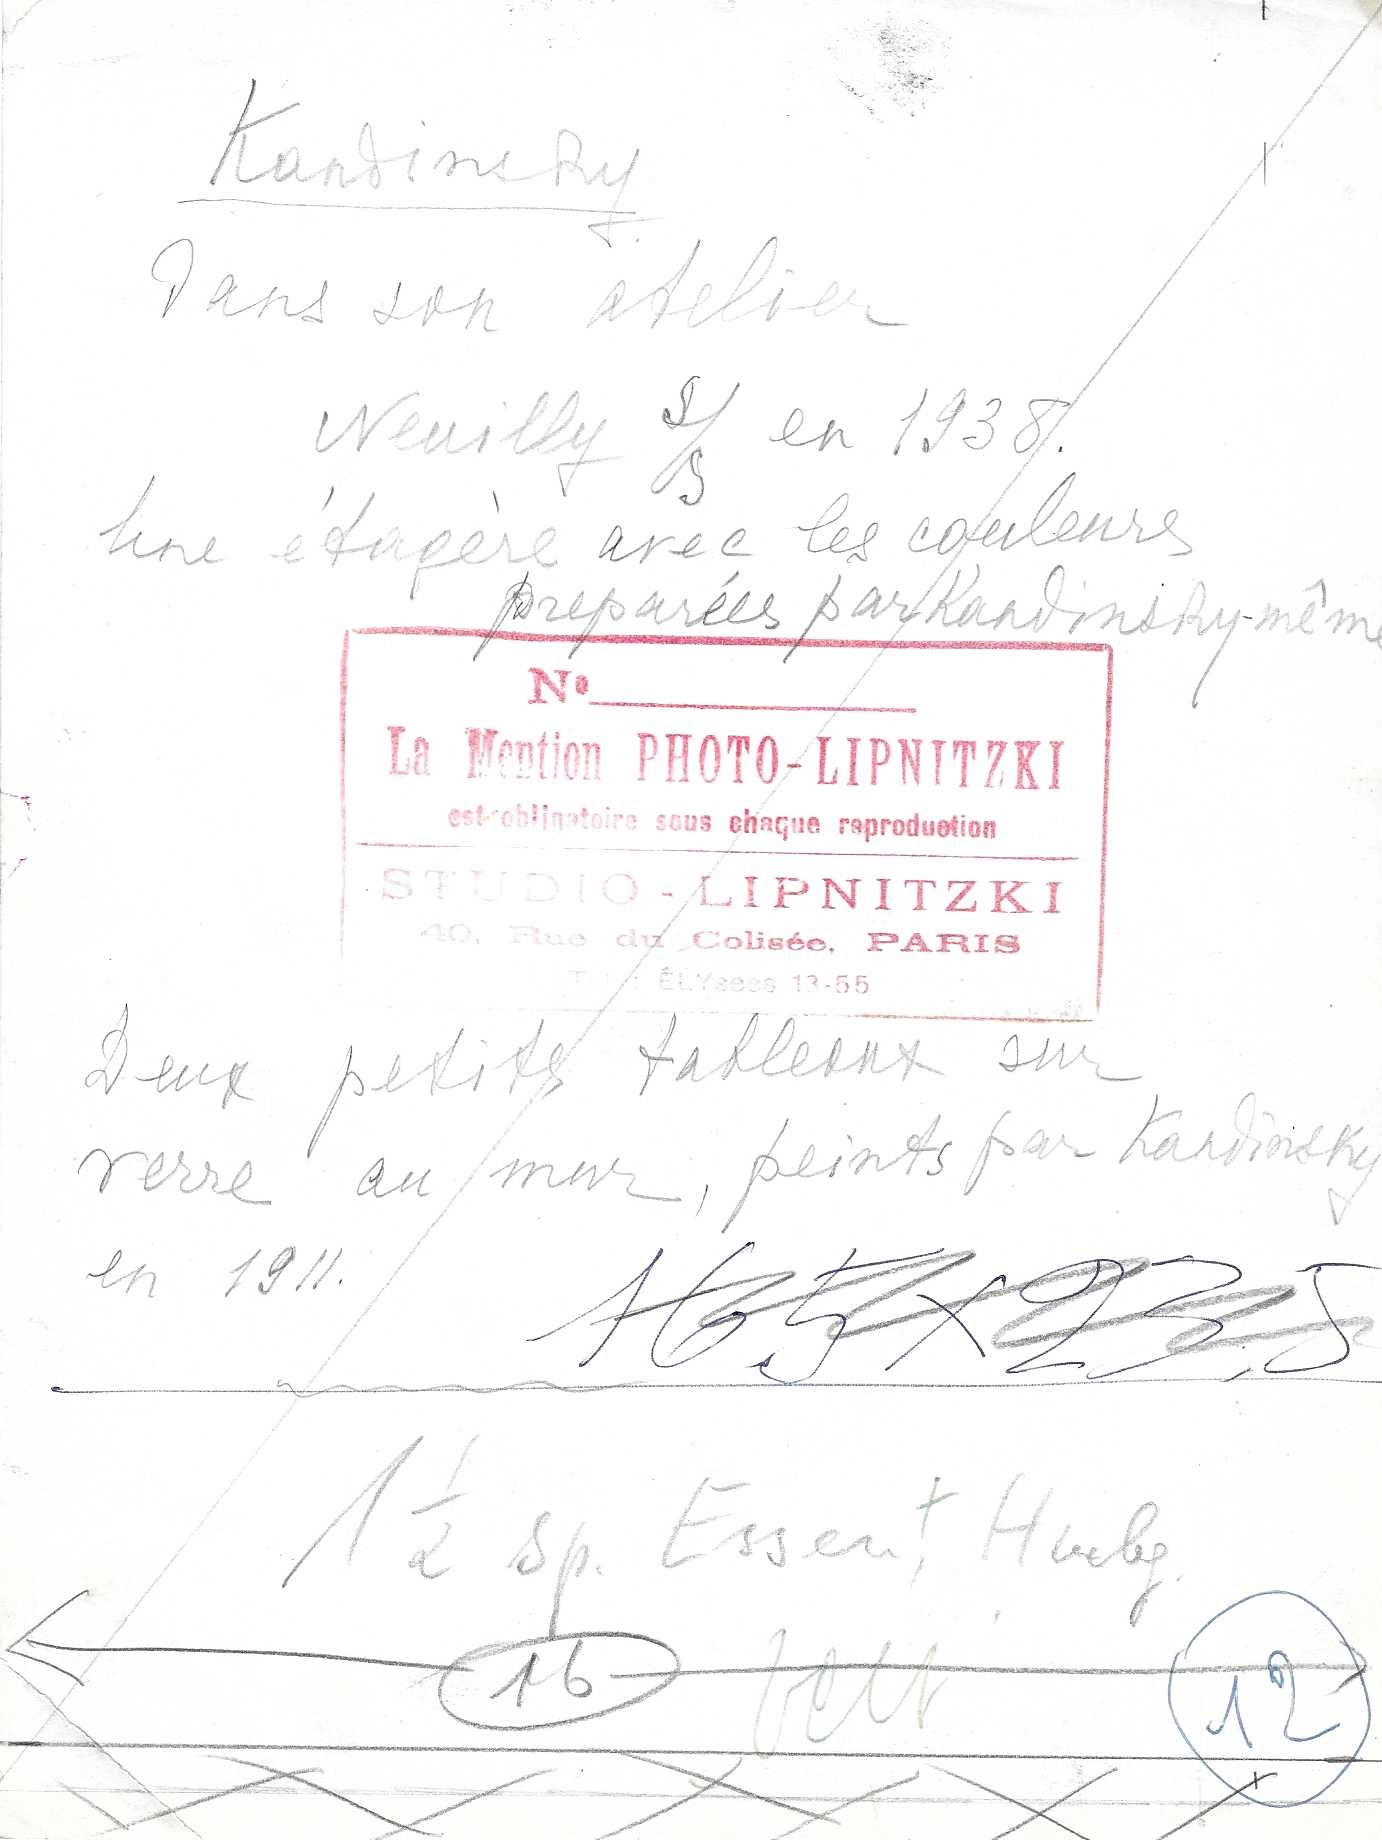 Kandinsky
Dans son atelier
Neuilly S/S en 1938.
Une étagère avec les couleurs
preparées par Kandinsky-même
No
La Mention PHOTO-LIPNITZKI
est obligatoire sous chaque reproduction
STUDIO-LIPNITZKI
40, Rue du Colisée, PARIS
Tél : ÉLYsées 13-55
Deux petits tableaux sur
verre au mur, peints par Kandinsky
en 1911.
16,5 x 23,5
1 1/2 sp. Essen
16
12